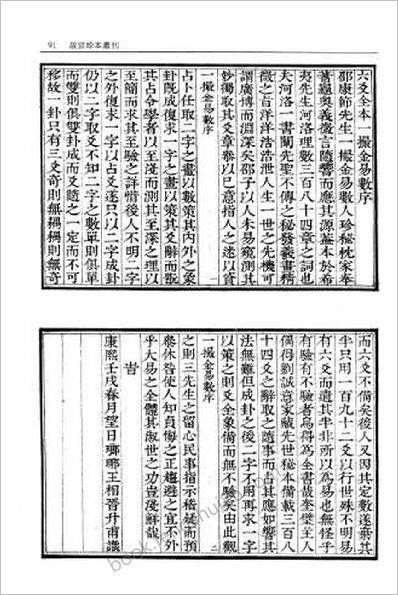 91　故宮珍本叢刊
六爻全本一撮金易數序
邵康節先生一撮金易數人珍秘枕家奉
蓍龜奥義微言隨響而應其源蓋本於希
夷先生河洛理數三百八十四章之詞也
夫河洛一書闡先聖不傳之秘發羲畫精
微之旨洋洋浩浩泄人生一世之先機可
謂廣博而淵深矣邵子以人未易窺測其
妙獨取其爻章纂以已意指人之迷以質
一撮金易數序　一
占卜任取二字之畫以數策其内外之象
卦既成復求一字之畫以策其爻辭而觀
其占令學者以至淺而測其至深之理以
至簡而求其至驗之詳惜後人不明二字
之外復求一字以占爻遂只以二字成卦
仍以二字取爻不知二字之數單則俱單
而雙則俱雙卦成而爻隨之一定而不可
移故一卦只有三爻奇則無耦耦則無奇
而六爻不備矣後人又因其定數遂棄其
半只用一百九十二爻以行世殊不明易
有六爻而遺其半非所以為易也無怪乎
有驗有不驗者烏得為全書哉奎璧主人
偶得劉誠意家藏先世秘本備載三百八
十四爻之辭取之隨事而占其應如響其
法無難但成卦之後二字不用再求一字
以策之則爻全象備而無不驗矣由此觀
一撮金易數序　二
之則三先生之留心民事指示稽疑而預
與休咎使人知貞悔之正趨避之宜不外
乎大易之全體其淑世之功豈淺鮮哉
旹
康熙壬戌春月望日瑯琊王相晋升甫識